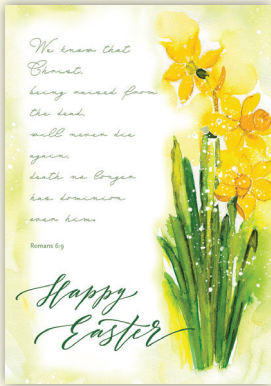 We know that
Christ,
being raised from
the dead,
will never die
again;
death no longer
has dominion
over him.
Romans 6:9
Happy
Easter